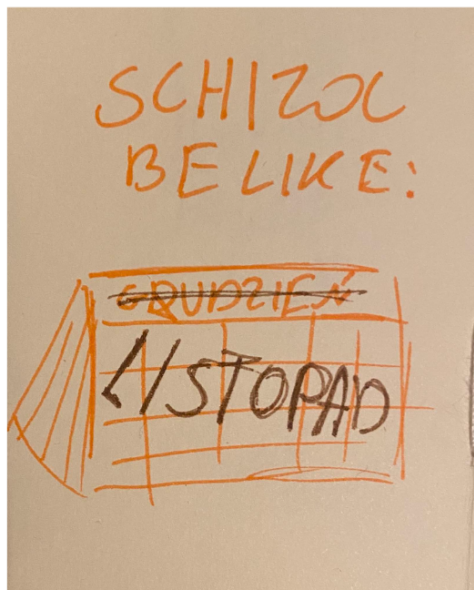 SCHIZOL
BE LIKE:
GRUDZIEŃ
LISTOPAD